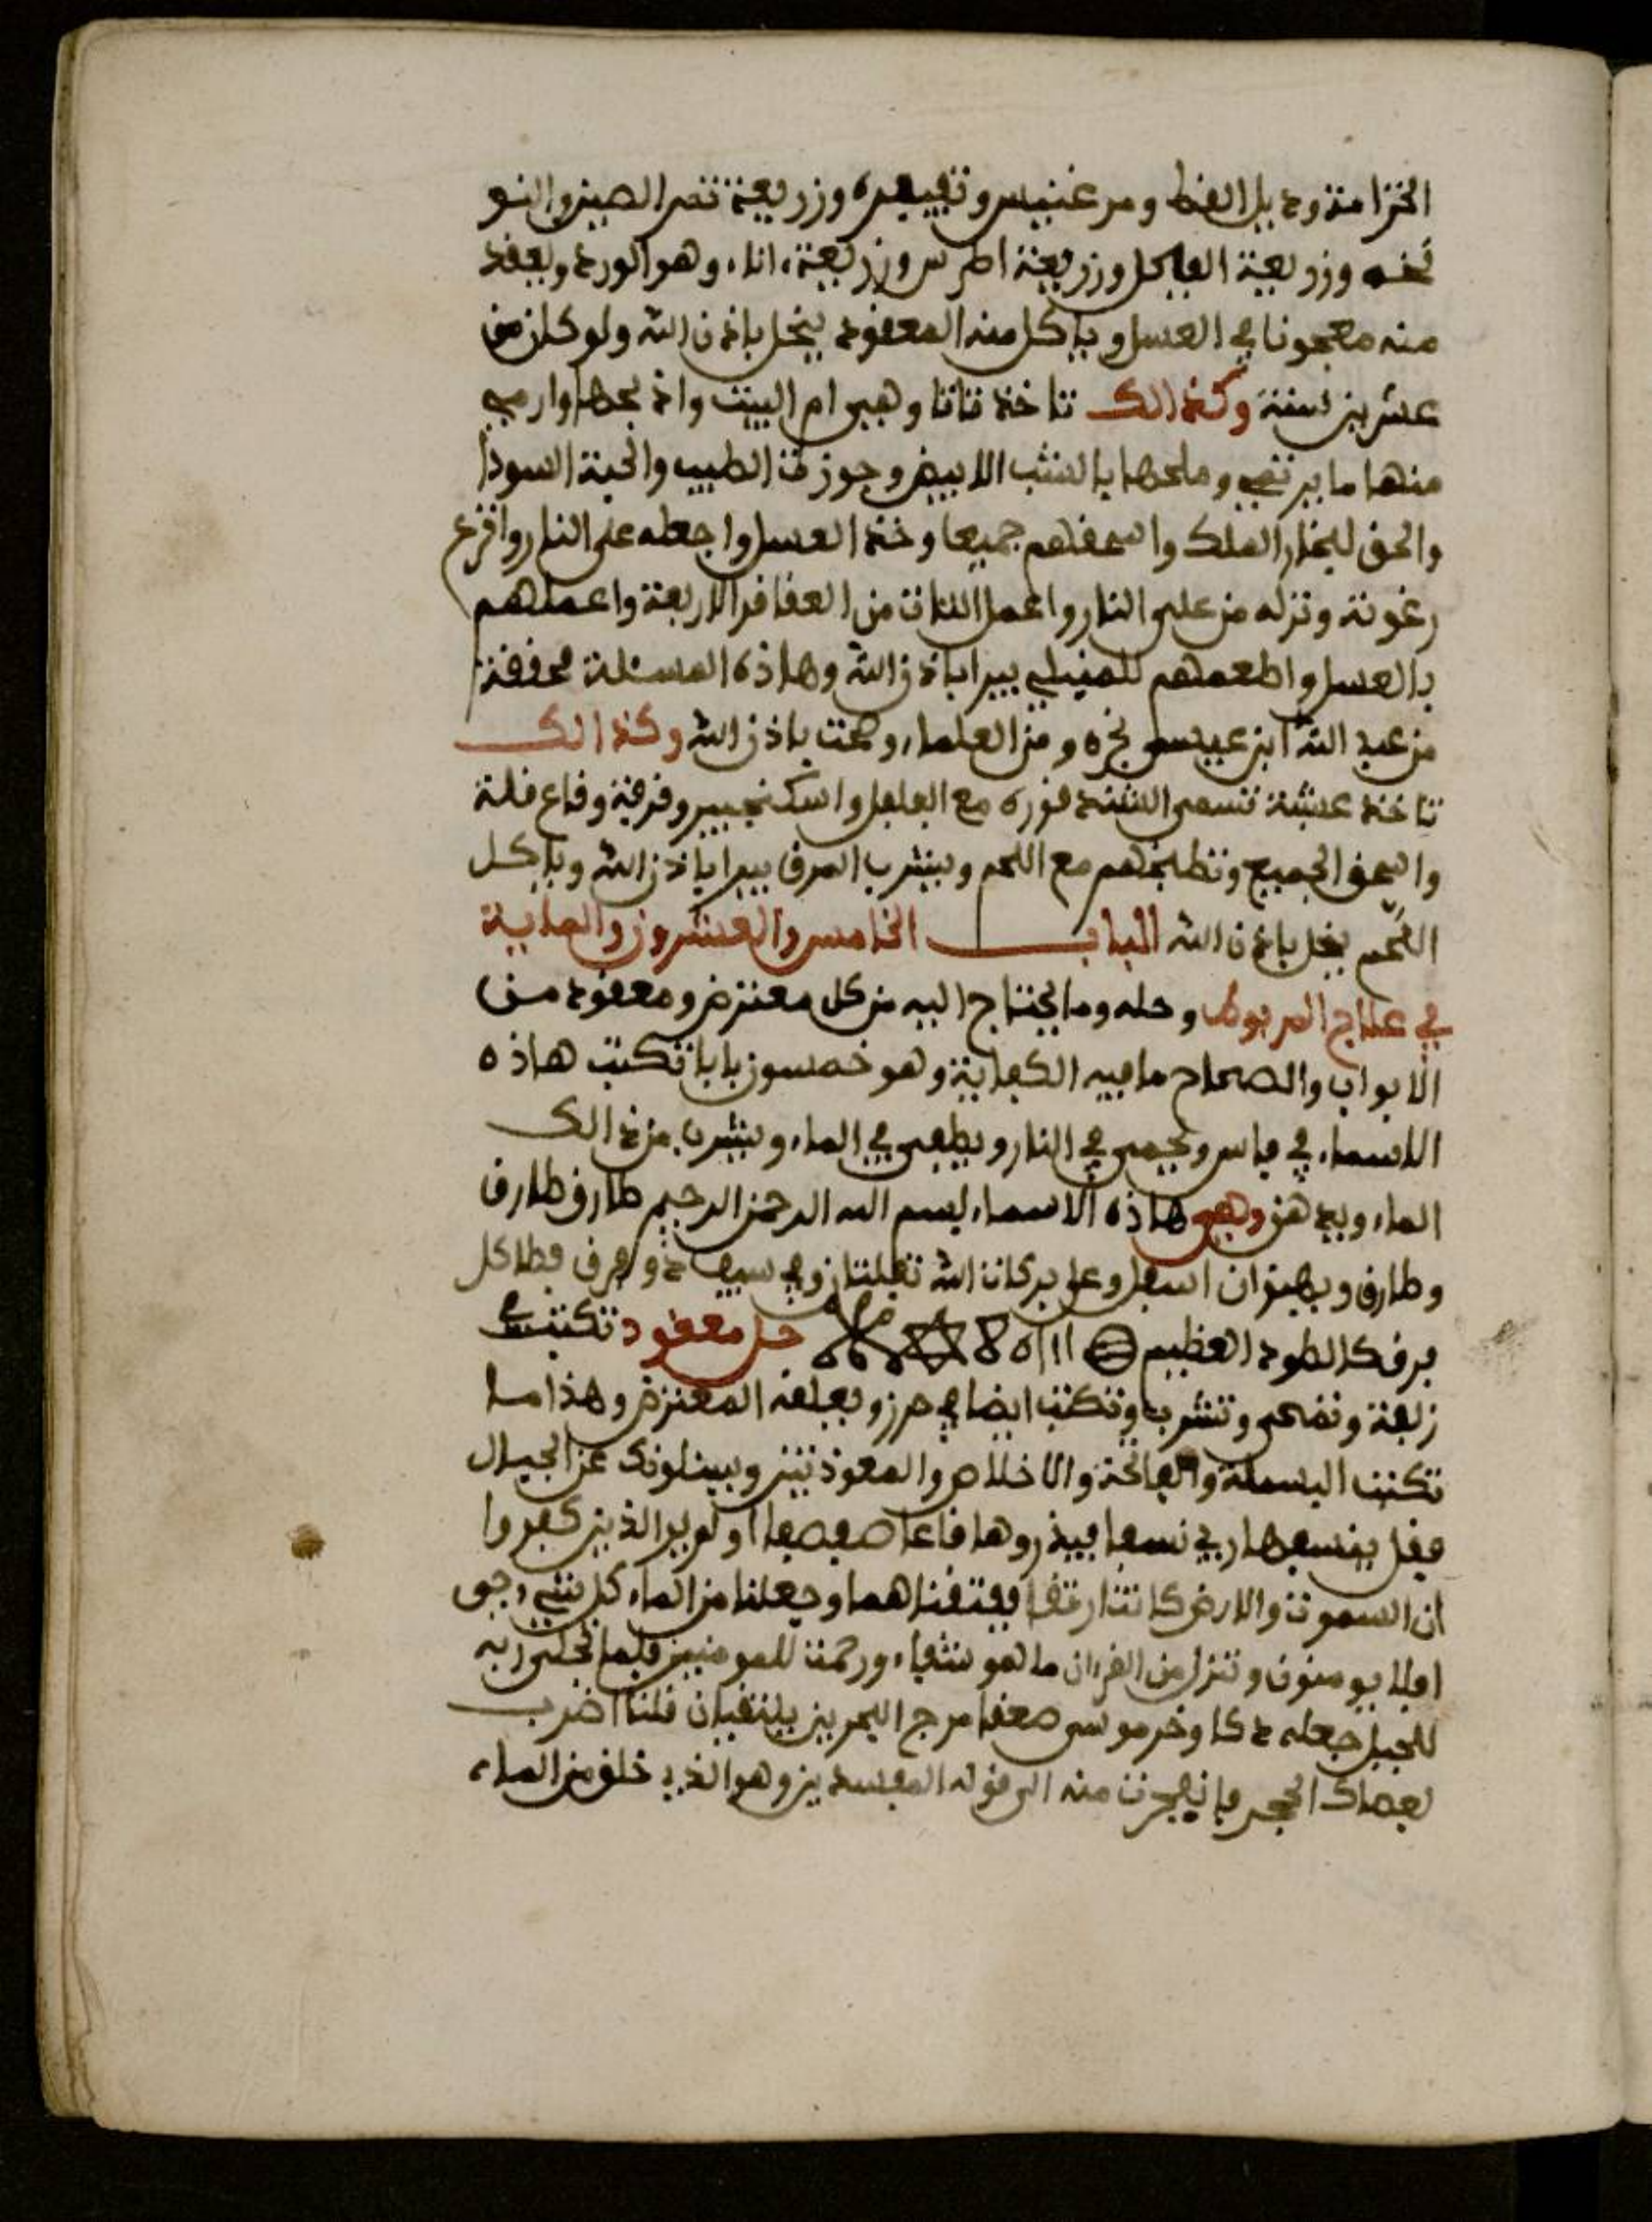 الخزامة وذبل القط ومرغنيس وتفيفره وزريعة تصر الصين والنو
نخه وزريعة الفجل وزريعة اطرس وزريعة اناء وهو الورد ويعقد
منه معجونا في العسل وياكل منه المعقود ينحل باذن الله ولو كان من
عشرين سنة وكذالك تاخذ تاتا وهي ام البيت واذبحها وارمي
منها ما يرتمي وملحها بالشب الابيض وجوزة الطيب والحبة السودا
والحق ليخار الملك واسحقهم جميعا وخذ العسل واجعله على النار وافزع
رغوته ونزله من على النار واعمل الثلاث من العقاقر الاربعة واعملهم
بالعسل واطعمهم للمبتلي يبرا باذن الله وهاذه المسئلة محققة
من عبد الله ابن عيسى نجره ومن العلماء وصحت باذن الله وكذالك
تاخذ عشبة تسمى الشندقوره مع الفلفل واسكنجبير وقرفة وقاع قلة
واسحق الجميع وتطبخهم مع اللحم ويشرب المرق يبرا باذن الله وياكل
اللحم ينحل باذن الله الباب الخامس والعشرون والماية
في علاج المربوط وحله وما يحتاج اليه من كل معترض ومعقود من
الابواب والصحاح ما فيه الكفاية وهو خمسون بابا تكتب هاذه
الاسماء في فاس ويحمى في النار ويطفى في الماء ويشرب من ذالك
الماء ويدهن وهي هاذه الاسماء بسم الله الرحمن الرحيم طارق طارق
وطارق وبهيوان اسفل وعلى بركات الله تقبلتان وفي سيف ذو فرق فطا كل
فرق كالطود العظيم حل معقود تكتب في
زلفة وتمحى وتشرب وتكتب ايضا في حرز ويعلقه المعترض وهذا ما
تكتب البسملة والفاتحة والاخلاص والمعوذتين ويسئلونك عن الجبال
فقل ينسفها ربي نسفا فيذروها قاعا صفصفا اولم ير الذين كفروا
ان السموت والارض كانتا رتقا ففتقناهما وجعلنا من الماء كل شيء حي
افلا يومنون وتنزل من القرءان ما هو شفاء ورحمت للمومنين فلما تجلى ربه
للجبل جعله دكا وخر موسى صعقا مرج البحرين يلتقيان فلنا اضرب
بعصاك الحجر فانفجرت منه الى قوله المفسدين وهو الذي خلق من الماء